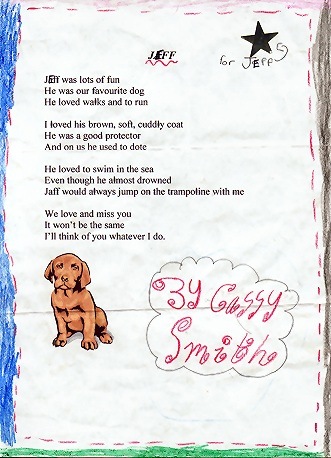 JEFF
for JEFF
JEff was lots of fun
He was our favourite dog
He loved walks and to run
I loved his brown, soft, cuddly coat
He was a good protector
And on us he used to dote
He loved to swim in the sea
Even though he almost drowned
Jaff would always jump on the trampoline with me
We love and miss you
It won't be the same
I'll think of you whatever I do.
By Cassy
Smith